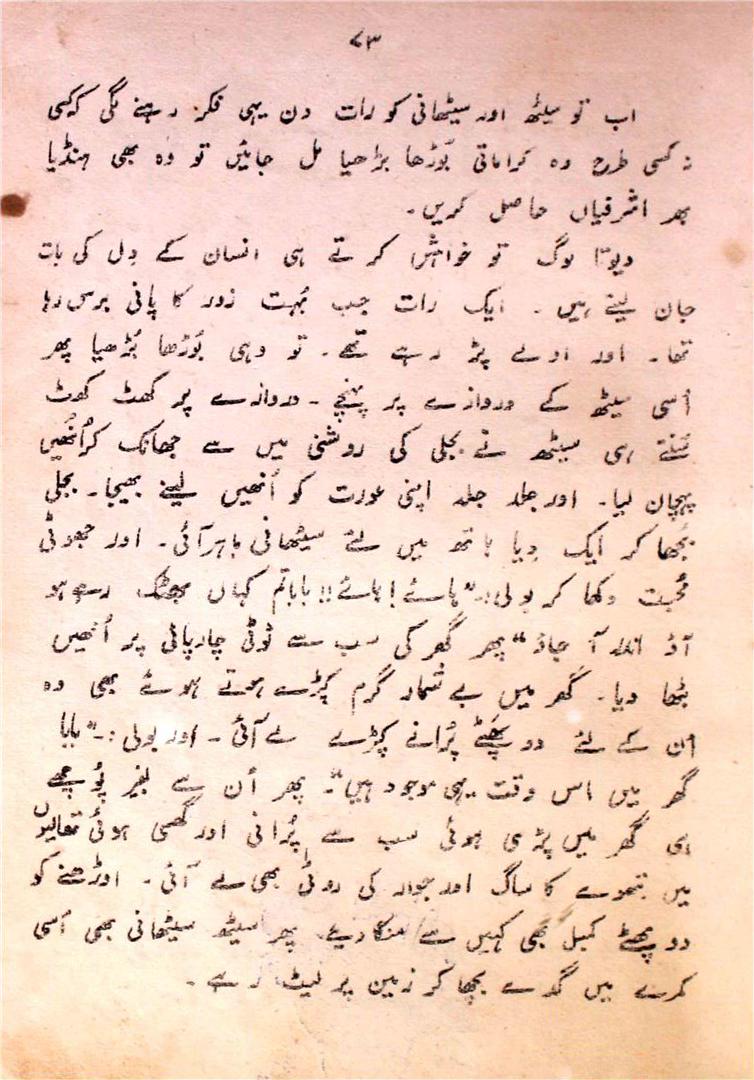 ۷۳
اب تو سیٹھ اور سیٹھانی کو رات دن یہی فکر رہنے لگی کہ کسی
نہ کسی طرح وہ کراماتی بُوڑھا بڑھیا مل جائیں تو وُہ بھی ہنڈیا
بھر اشرفیاں حاصل کریں۔
دیوتا لوگ تو خواہش کرتے ہی انسان کے دِل کی بات
جان لیتے ہیں۔ ایک رات جب بُہت زور کا پانی برس رہا
تھا۔ اور اولے پڑ رہے تھے۔ تو وہی بُوڑھا بُڑھیا پھر
اُسی سیٹھ کے دروازے پر پہنچے۔ دروازے پر کھٹ کھٹ
سُنتے ہی سیٹھ نے بجلی کی روشنی میں سے جھانک کر اُنھیں
پہچان لیا۔ اور جلد جلد اپنی عورت کو اُنھیں لینے بھیجا۔ بجلی
بُجھا کر ایک دِیا ہاتھ میں لئے سیٹھانی باہر آئی۔ اور جھوٹی
مُحبت دکھا کر بولی:۔ "ہائے! ہائے!! بابا تم کہاں بھٹک رہے ہو
آؤ اندر آ جاؤ" پھر گھر کی سب سے ٹوٹی چارپائی پر اُنھیں
بٹھا دیا۔ گھر میں بے شمار گرم کپڑے ہوتے ہوئے بھی وہ
اُن کے لئے دو پھَٹے پُرانے کپڑے لے آئی۔ اور بولی:۔ "بابا
گھر میں اس وقت یہی موجود ہیں"۔ پھر اُن سے بغیر پُوچھے
ہی گھر میں پڑی ہوئی سب سے پُرانی اور گھسی ہوئی تھالیوں
میں بتھوے کا ساگ اور جوار کی روٹی بھی لے آئی۔ اوڑھنے کو
دو پھٹے کمبل بھی کہیں سے منگا دیے۔ پھر سیٹھ سیٹھانی بھی اُسی
کمرے میں گدے بچھا کر زمین پر لیٹ رہے۔